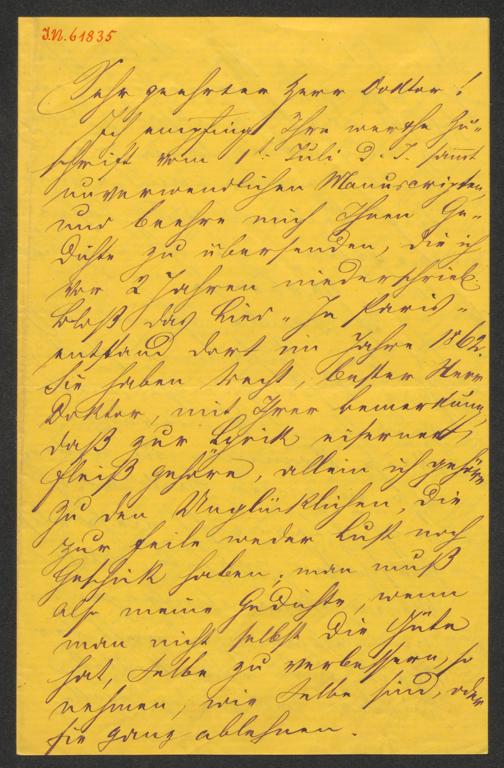 I.N. 61835
Sehr geehrter Herr Doktor!
Ich empfing Ihre werthe Zu-
schrift vom 1t. Juli d. J. sammt
unverwendlichen Manuscripten,
und beehre mich Ihnen Ge-
dichte zu übersenden, die ich
vor 2 Jahren niederschrieb
bloß das Lied „In Paris"
entstand dort im Jahre 1862.
Sie haben recht, bester Herr
Doktor, mit Ihrer Bemerkung,
daß zur Lyrik eiserner
Fleiß gehöre, allein ich gehöre
zu den Unglücklichen, die
zur Feile weder Lust noch
Geschick haben; man muß
also meine Gedichte, wenn
man nicht selbst die Güte
hat, selbe zu verbessern, so
nehmen, wie selbe sind, oder
sie ganz ablehnen.